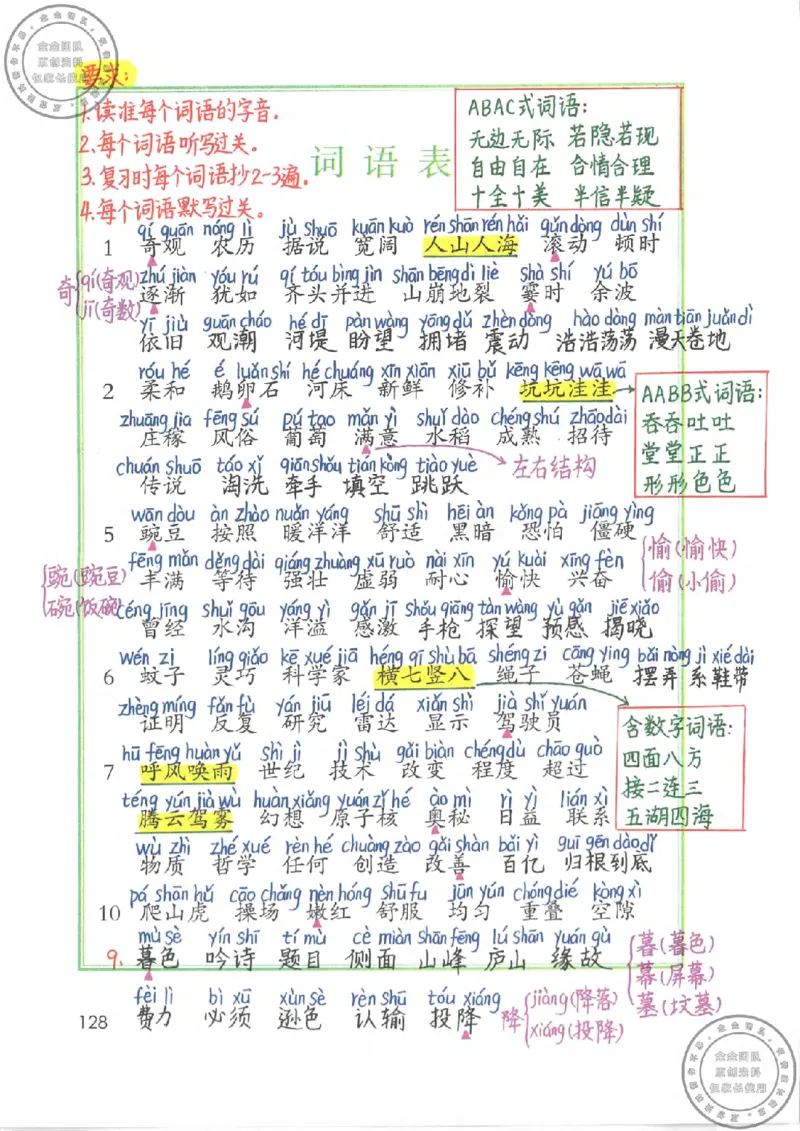 要求:
1.读准每个词语的字音.
2.每个词语听写过关。
3.复习时每个词语抄2-3遍。
4.每个词语默写过关。
词语表
ABAC式词语:
无边无际 若隐若现
自由自在 合情合理
十全十美 半信半疑
qí guān nóng lì jù shuō kuān kuò rén shān rén hǎi gǔn dòng dùn shí
1 奇观 农历 据说 宽阔 人山人海 滚动 顿时
奇 qí(奇观)
jī(奇数)
zhú jiàn yóu rú qí tóu bìng jìn shān bēng dì liè shà shí yú bō
逐渐 犹如 齐头并进 山崩地裂 霎时 余波
yī jiù guān cháo hé dī pàn wàng yōng dǔ zhèn dòng hào dòng màn tiān juǎn dì
依旧 观潮 河堤 盼望 拥堵 震动 浩浩荡荡 漫天卷地
róu hé é luǎn shí hé chuáng xīn xiān xiū bǔ kēng kēng wā wā
2 柔和 鹅卵石 河床 新鲜 修补 坑坑洼洼
AABB式词语:
吞吞吐吐
堂堂正正
形形色色
zhuāng jia fēng sú pú tao mǎn yì shuǐ dào chéng shú zhāo dài
庄稼 风俗 葡萄 满意 水稻 成熟 招待
左右结构
chuán shuō táo xǐ qiān shǒu tián kòng tiào yuè
传说 淘洗 牵手 填空 跳跃
wān dòu àn zhào nuǎn yáng shū shì hēi àn kǒng pà jiāng yìng
5 豌豆 按照 暖洋洋 舒适 黑暗 恐怕 僵硬
豌(豌豆)
碗(饭碗)
愉(愉快)
偷(小偷)
fēng mǎn děng dài qiáng zhuàng xū ruò nài xīn yú kuài xīng fèn
丰满 等待 强壮 虚弱 耐心 愉快 兴奋
céng jīng shuǐ gōu yáng yì gǎn jī shǒu qiāng tàn wàng yù gǎn jiē xiǎo
曾经 水沟 洋溢 感激 手枪 探望 预感 揭晓
wén zi líng qiǎo kē xué jiā héng qī shù bā shéng zi cāng ying bǎi nòng jì xié dài
6 蚊子 灵巧 科学家 横七竖八 绳子 苍蝇 摆弄 系鞋带
zhèng míng fǎn fù yán jiū léi dá xiǎn shì jià shǐ yuán
证明 反复 研究 雷达 显示 驾驶员
含数字词语:
四面八方
接二连三
五湖四海
hū fēng huàn yǔ shì jì jì shù gǎi biàn chéng dù chāo guò
7 呼风唤雨 世纪 技术 改变 程度 超过
téng yún jià wù huàn xiǎng yuán zǐ hé ào mì rì yì lián xì
腾云驾雾 幻想 原子核 奥秘 日益 联系
wù zhì zhé xué rèn hé chuàng zào gǎi shàn bǎi yì guī gēn dào dǐ
物质 哲学 任何 创造 改善 百亿 归根到底
pá shān hǔ cāo chǎng nèn hóng shū fu jūn yún chóng dié kòng xì
10 爬山虎 操场 嫩红 舒服 均匀 重叠 空隙
mù sè yín shī tí mù cè miàn shān fēng lú shān yuán gù
9. 暮色 吟诗 题目 侧面 山峰 庐山 缘故
暮(暮色)
幕(屏幕)
墓(坟墓)
fèi lì bì xū xùn sè rèn shū tóu xiáng
费力 必须 逊色 认输 投降
降 jiàng(降落)
xiáng(投降)
128